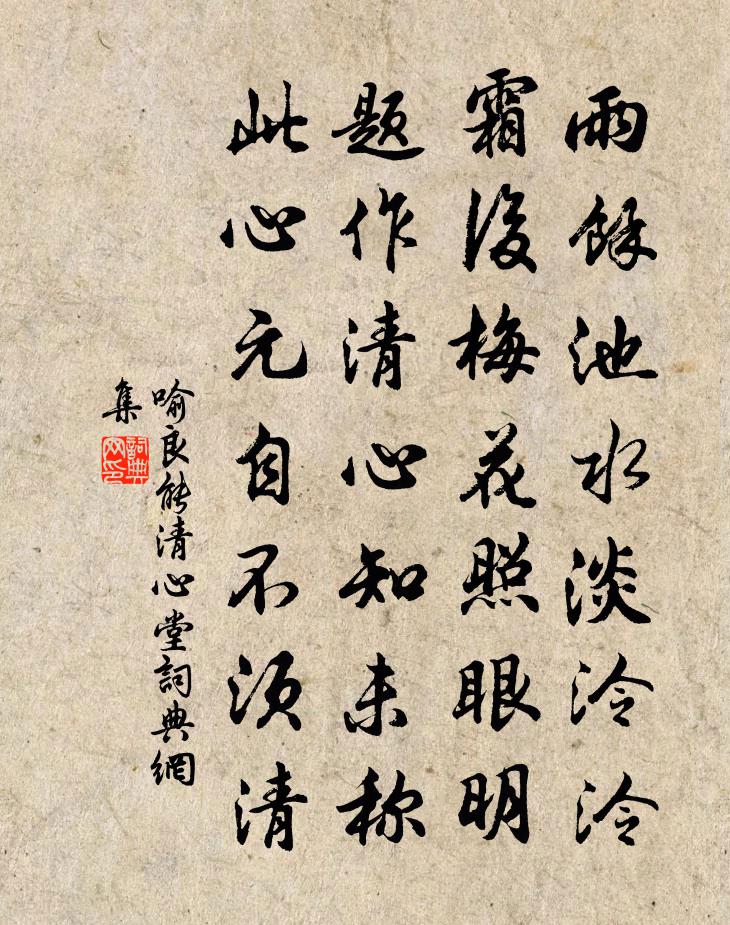 雨餘池水淡泠泠
霜後梅花照眼明
題作清心知未称
此心元自不須清
喻良能清心堂詞典網
集
詞典
网印